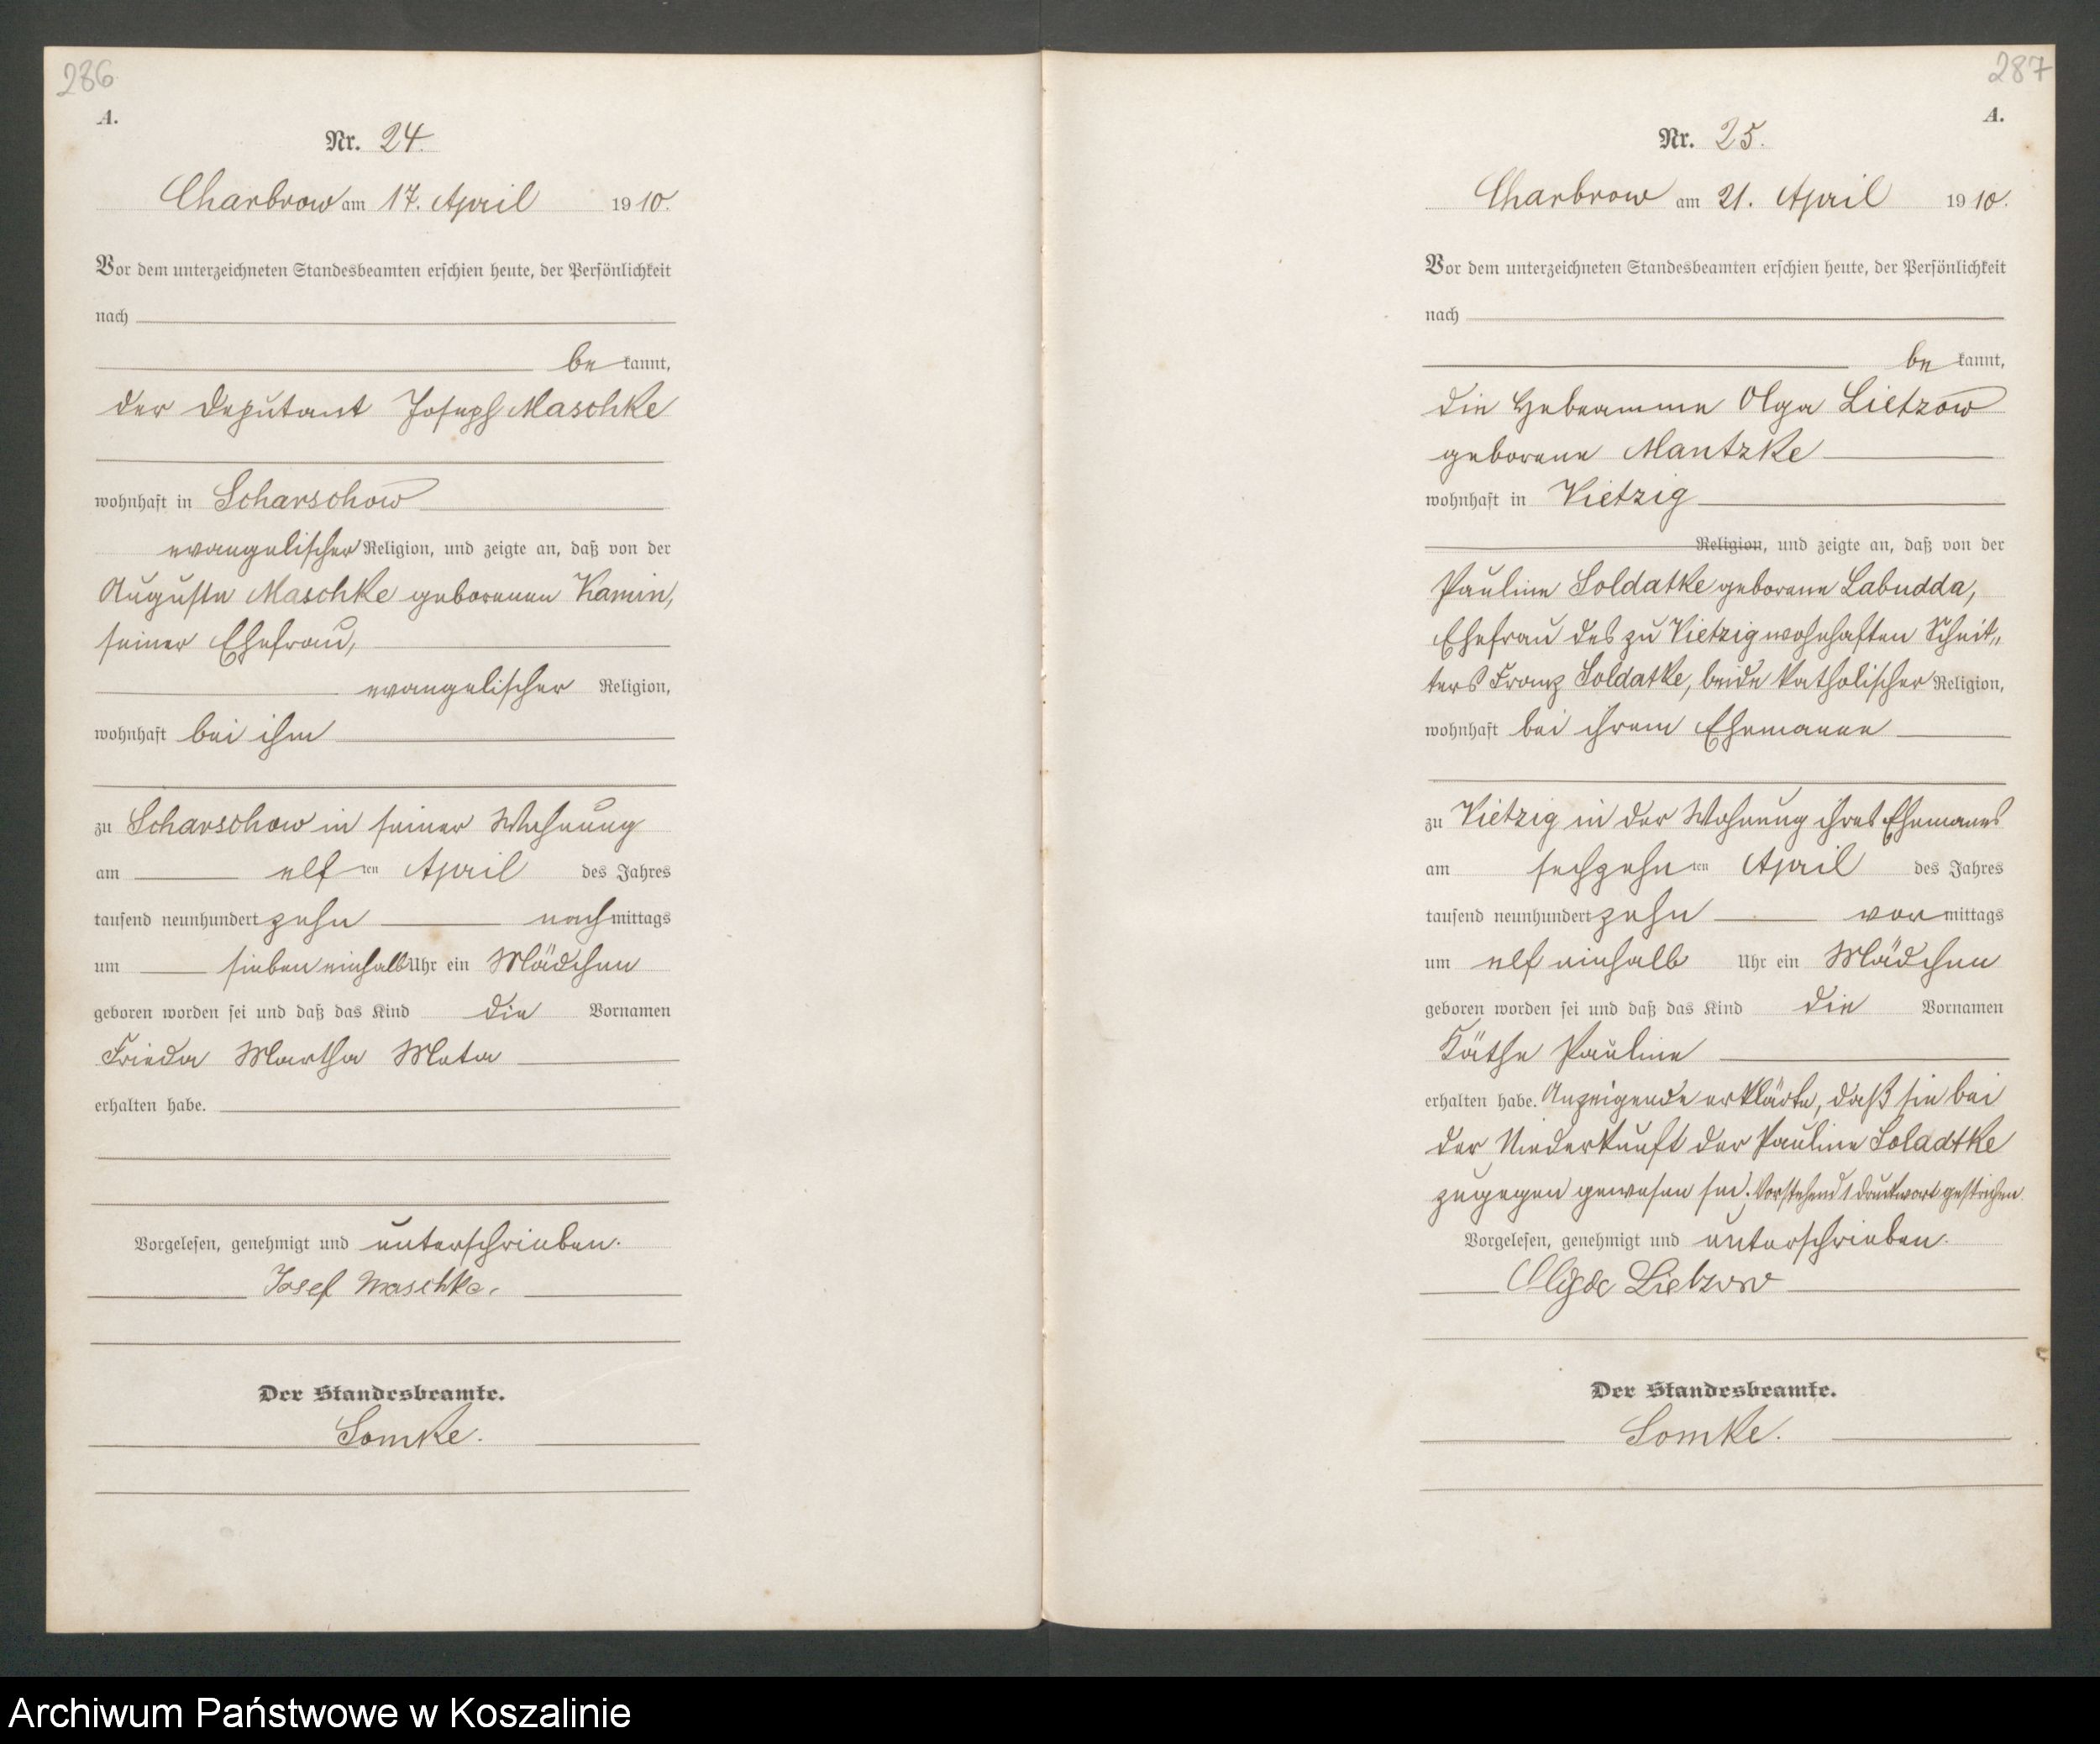 286
A.
Nr. 24.
Charbrow am 17. April 1910.
Vor dem unterzeichneten Standesbeamten erschien heute, der Persönlichkeit
nach
bekannt,
der Deputant Joseph Maschke
wohnhaft in Scharschow
evangelischer Religion, und zeigte an, daß von der
Auguste Maschke geborenen Kamin,
seiner Ehefrau,
evangelischer Religion,
wohnhaft bei ihm
zu Scharschow in seiner Wohnung
am elften April des Jahres
tausend neunhundert zehn nachmittags
um sieben einhalb Uhr ein Mädchen
geboren worden sei und daß das Kind die Vornamen
Frieda Martha Meta
erhalten habe.
Vorgelesen, genehmigt und unterschrieben.
Josef Maschke.
Der Standesbeamte.
Somke.
287
A.
Nr. 25.
Charbrow am 21. April 1910.
Vor dem unterzeichneten Standesbeamten erschien heute, der Persönlichkeit
nach
bekannt,
die Hebeamme Olga Lietzow
geborene Mantzke
wohnhaft in Vietzig
Religion, und zeigte an, daß von der
Pauline Soldatke geborene Labudda,
Ehefrau des zu Vietzig wohnhaften Schnit„
ters Franz Soldatke, beide katholischer Religion,
wohnhaft bei ihrem Ehemanne
zu Vietzig in der Wohnung ihres Ehemanns
am sechzehnten April des Jahres
tausend neunhundert zehn vormittags
um elf einhalb Uhr ein Mädchen
geboren worden sei und daß das Kind die Vornamen
Käthe Pauline
erhalten habe. Anzeigende erklärte, daß sie bei
der Niederkunft der Pauline Soladtke
zugegen gewesen sei. Vorstehend 1 Druckwort gestrichen.
Vorgelesen, genehmigt und unterschrieben.
Olga Lietzow
Der Standesbeamte.
Somke.
Archiwum Państwowe w Koszalinie